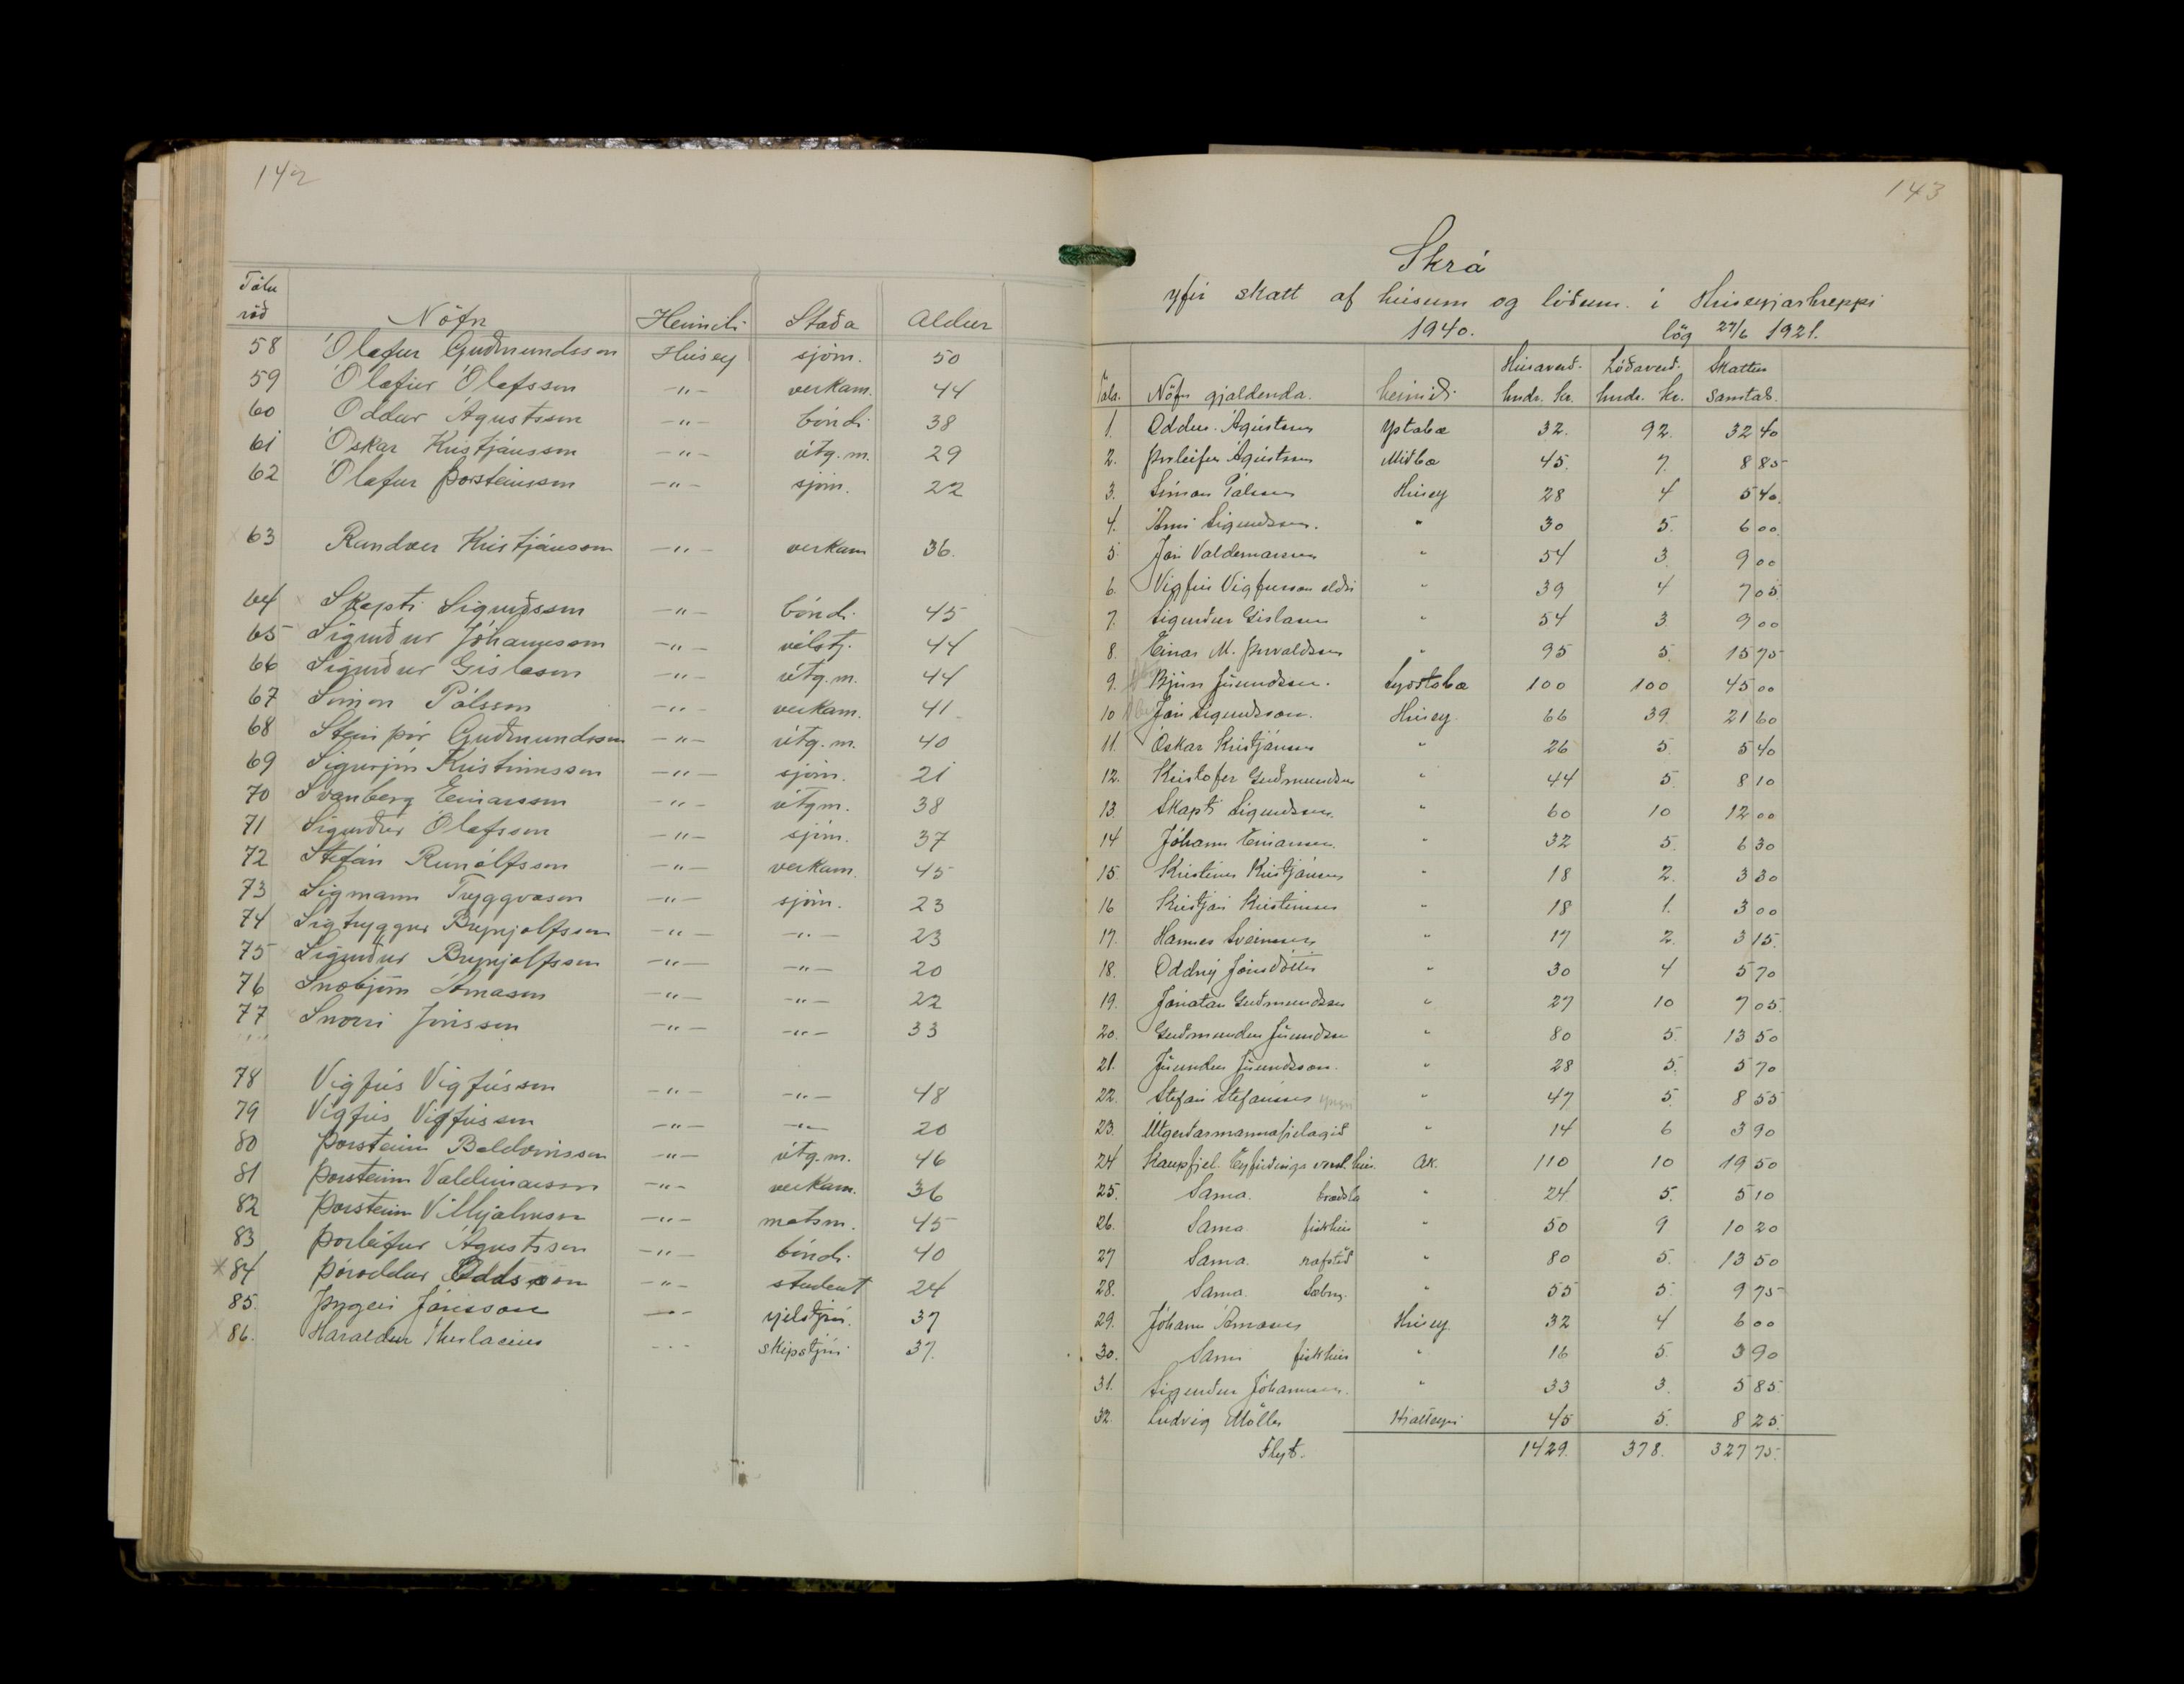 142
Tölu
röð Nöfn Heimili Staða Aldur
58 Ólafur Guðmundsson Hrísey sjóm. 50
59 Ólafur Ólafsson -"- verkam. 44
60 Oddur Ágústsson -"- bóndi 38
61 Óskar Kristjánsson -"- útg.m. 29
62 Ólafur Þorsteinsson -"- sjóm. 22
63 Rundver Kristjánsson -"- verkam 36.
64 Skapti Sigurðsson -"- bóndi 45
65 Sigurður Jóhannsson -"- vélstj. 44
66 Sigurður Gíslason -"- útg.m. 44
67 Símon Pálsson -"- verkam. 41
68 Steinþór Guðmundsson -"- útg.m. 40
69 Sigurjón Kristinsson -"- sjóm. 21
70 Svanberg Einarsson -"- útgm. 38
71 Sigurður Ólafsson -"- sjóm. 37
72 Stefán Runólfsson -"- verkam. 45
73 Sigmann Tryggvason -"- sjóm. 23
74 Sigtryggur Brynjolfsson -"- -"- 23
75 Sigurður Brynjolfsson -"- -"- 20
76 Snæbjörn Árnason -"- -"- 22
77 Snorri Jónsson -"- -"- 33
78 Vigfús Vigfússon -"- -"- 48
79 Vigfús Vigfússon -"- -"- 20
80 Þorsteinn Baldvinsson -"- útg.m. 46
81 Þorsteinn Valdimarsson -"- verkam. 36
82 Þorsteinn Vilhjálmsson -"- matsm. 45
83 Þorleifur Ágústsson -"- bóndi 40
× 84 Þóroddur Oddsson -"- student 24
85. Þorgeir Jónsson -"- vjelstjóri. 37
× 86. Haraldur Thorlacius -"- skipstjóri 37.
143
Skrá
yfir skatt af húsum og lóðum í Hríseyjarhreppi
1940. lög 27/6 1921.
Tala. Nöfn gjaldenda. heimili. Húsaverð. hndr. kr. Lóðaverð. hndr. kr. Skattur samtals.
1. Oddur Ágústsson Ystabæ 32. 92. 32 40
2. Þorleifur Ágústsson Miðbæ 45. 7. 8 85
3. Símon Pálsson Hrísey 28 4 5 40.
4. Árni Sigurðsson. " 30 5. 6 00.
5. Jón Valdemarsson " 54 3. 9 00
6. Vigfús Vigfússon eldri " 39 4 7 05
7. Sigurður Gíslason " 54 3 9 00
8. Einar M. Þorvaldsson " 95 5. 15 75
9. Björn Jörundsson. Syðstabæ 100 100 45 00
10 Jón Sigurðsson. Hrísey. 66 39. 21 60
11. Óskar Kristjánsson " 26 5. 5 40
12. Kristofer Guðmundsson " 44 5. 8 10
13. Skapti Sigurðsson. " 60 10 12 00
14 Jóhann Einarsson. " 32 5. 6 30
15. Kristinn Kristjánsson " 18 2. 3 30
16 Kristján Kristinsson " 18 1. 3 00
17. Hannes Sveinsson " 17 2. 3 15.
18. Oddný Jónsdóttir " 30 4 5 70
19. Jónatan Guðmundsson " 27 10 7 05.
20. Guðmundur Jörundsson " 80 5. 13 50
21. Jörundur Jörundsson. " 28 5. 5 70
22. Stefán Stefánsson yngri " 47 5. 8 55
23. Útgerðarmannafjelagið " 14 6 3 90
24 Kaupfjel. Eyfirðinga verzl. hús. Ak. 110 10 19 50
25. Sama. bræðsla " 24. 5. 5 10
26. Sama fiskhús " 50 9 10 20
27 Sama. rafstöð " 80 5. 13 50
28. Sama. " 55 5. 9 75
29. Jóhann Árnason Hrísey. 32 4 6 00
30. Sami fiskhús " 16 5. 3 90
31. Sigurður Jóhannsson. " 33 3. 5 85.
32. Ludvig Möller Hjalteyri 45 5. 8 25.
Flyt. 1429. 378. 327 75.